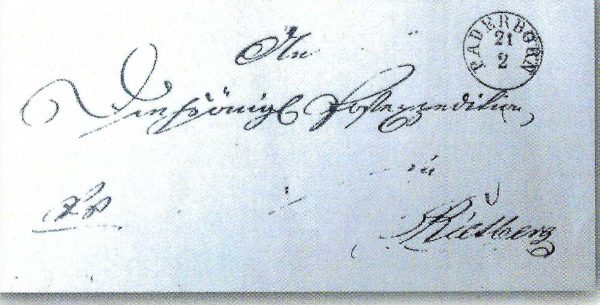 An
PADERBORN
21
2
Die Königl Postexpedition
Rietberg